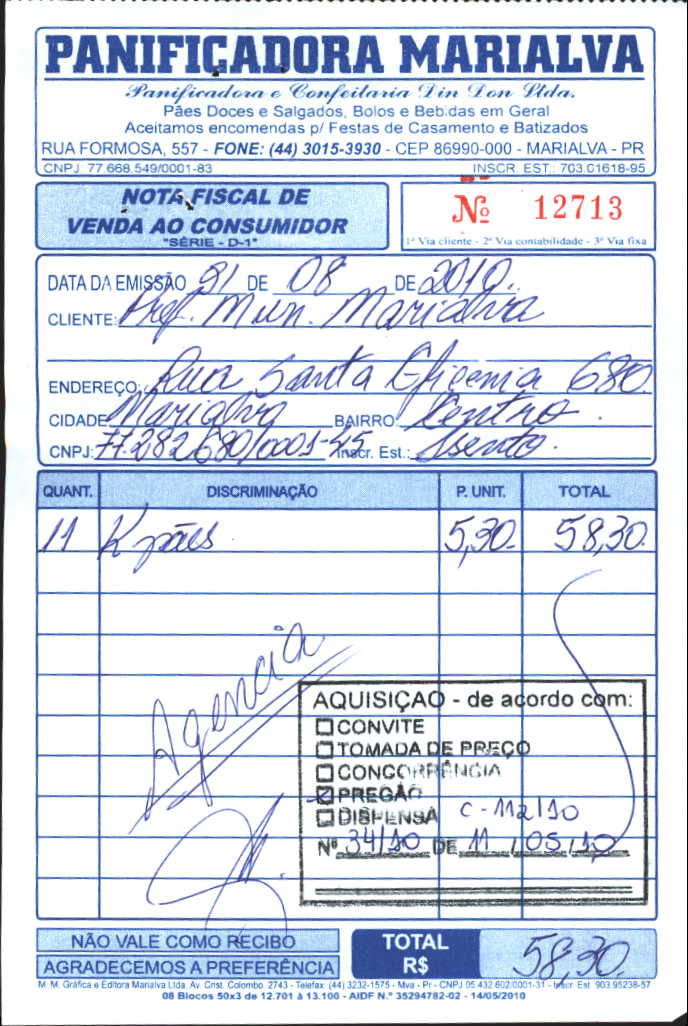 PANIFICADORA MARIALVA
Panificadora e Confeitaria Din Don Ltda.
Pães Doces e Salgados, Bolos e Bebidas em Geral
Aceitamos encomendas p/ Festas de Casamento e Batizados
RUA FORMOSA, 557 - FONE: (44) 3015-3930 - CEP 86990-000 - MARIALVA - PR
CNPJ 77.668.549/0001-83 INSCR EST.: 703.01618-95
NOTA FISCAL DE
VENDA AO CONSUMIDOR
"SÉRIE - D-1"
Nº 12713
1ª Via cliente - 2ª Via contabilidade - 3ª Via fixa
DATA DA EMISSÃO 31 DE 08 DE 2010.
CLIENTE: Pref. Mun. Marialva
ENDEREÇO: Rua Santa Efigenia 680.
CIDADE Marialva BAIRRO: Centro.
CNPJ: 77.282.680/0001-45 Inscr. Est.: Isento.
QUANT. DISCRIMINAÇÃO P. UNIT. TOTAL
11 K pães 5,30. 58,30.
Agencia
AQUISIÇAO - de acordo com:
CONVITE
TOMADA DE PREÇO
CONCORRÊNCIA
PREGÃO
DISPENSA C-112/10
Nº 34/10 DE 11 / 05 / 10
NÃO VALE COMO RECIBO
AGRADECEMOS A PREFERÊNCIA
TOTAL
R$ 58,30.
M. M. Gráfica e Editora Marialva Ltda. Av. Crist. Colombo, 2743 - Telefax: (44) 3232-1575 - Mva - Pr - CNPJ 05.432.602/0001-31 - Inscr. Est. 903.95238-57
08 Blocos 50x3 de 12.701 à 13.100 - AIDF N.º 35294782-02 - 14/05/2010